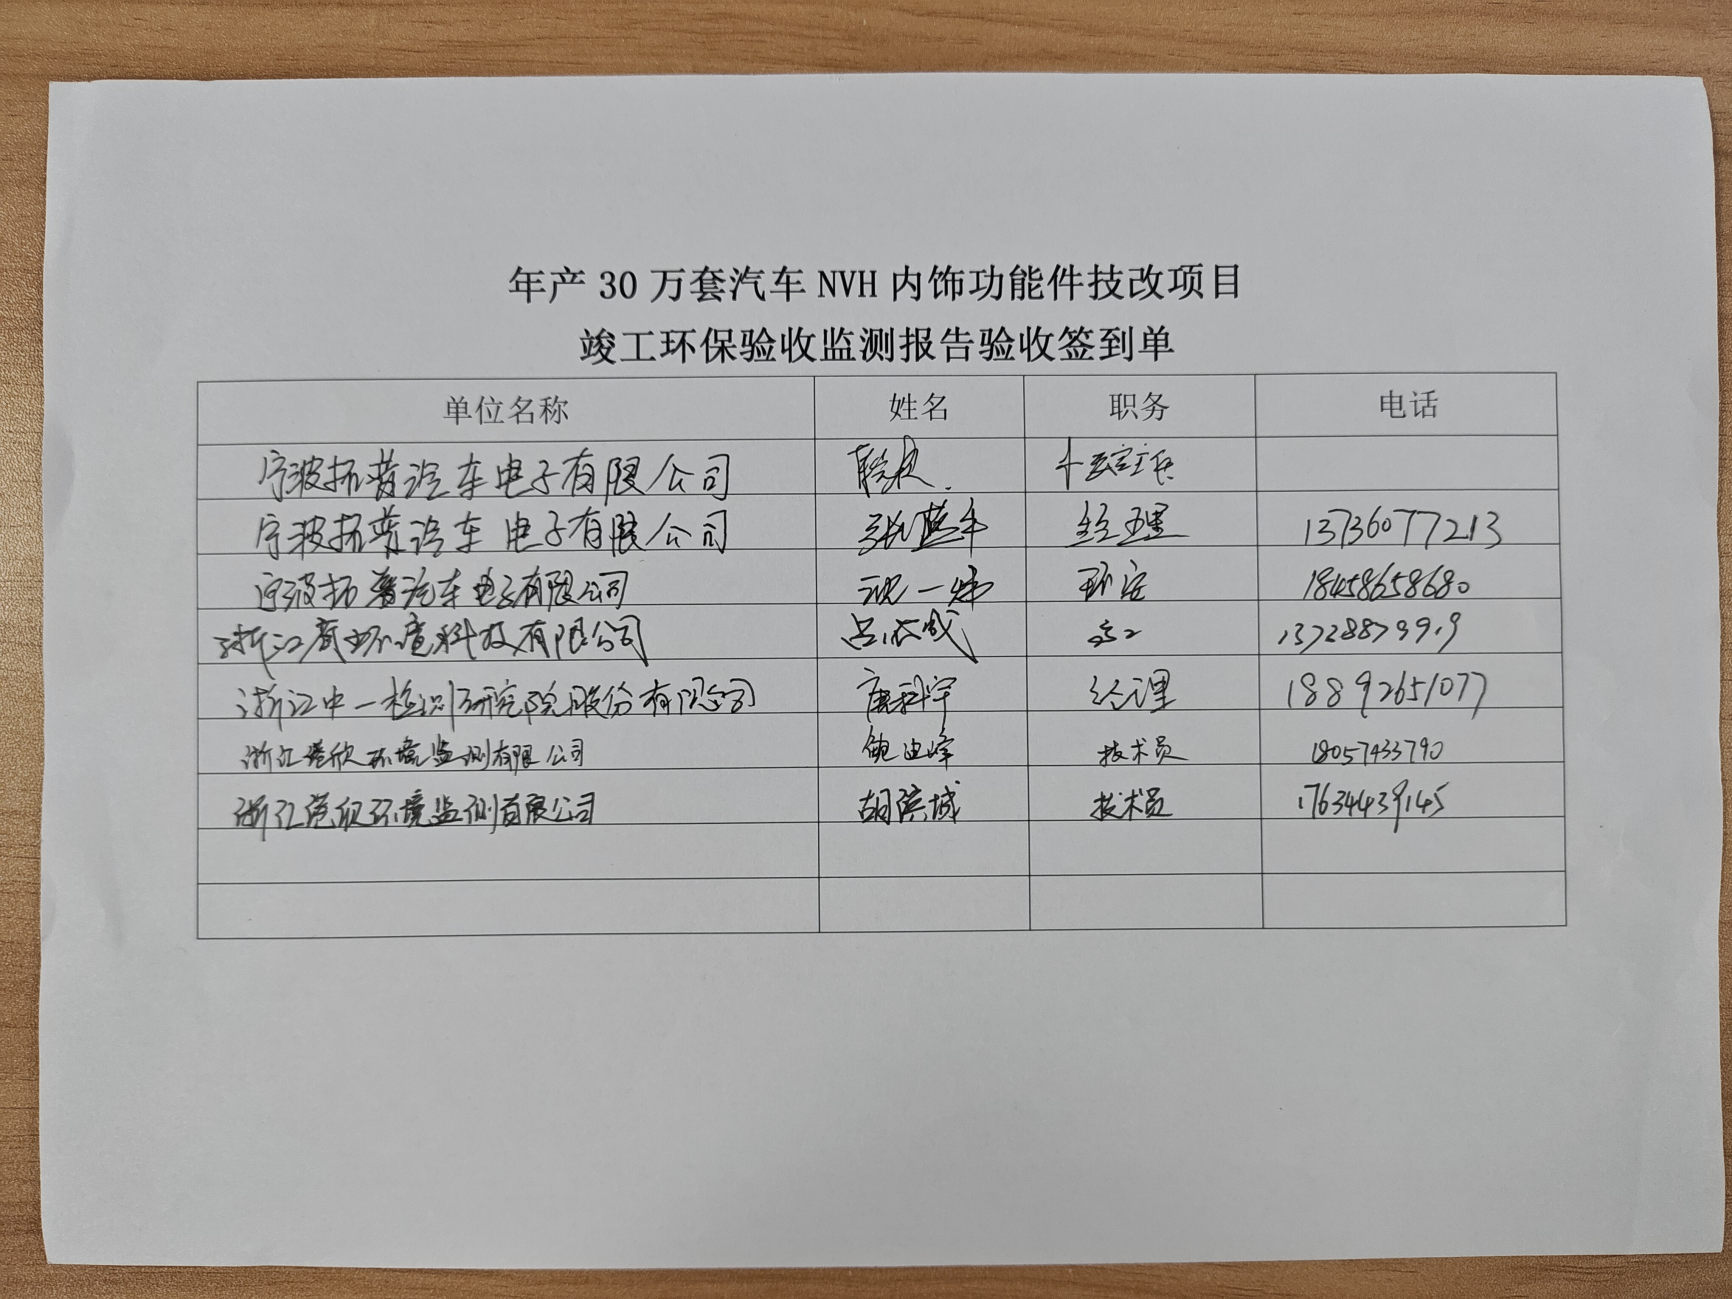 年产 30 万套汽车 NVH 内饰功能件技改项目
竣工环保验收监测报告验收签到单
单位名称 姓名 职务 电话
宁波拓普汽车电子有限公司
宁波拓普汽车电子有限公司 经理 13736077213
宁波拓普汽车电子有限公司 环安 18458658680
环境科技有限公司
浙江中一检测研究院股份有限公司 唐科宇 经理 18892651077
浙江 环境监测有限公司 鲍迪峰 技术员 18057433790
浙江 环境监测有限公司 胡滨城 技术员 17634439145